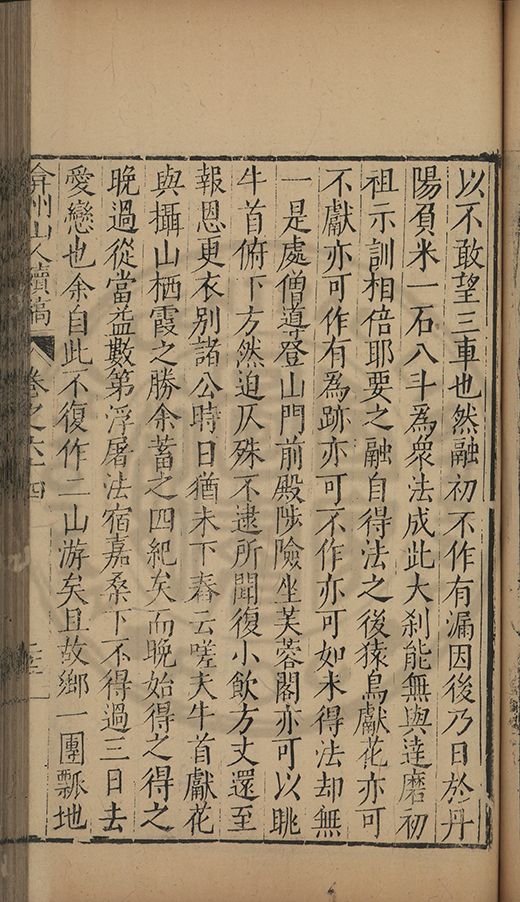 以不敢望三車也然融初不作有漏因後乃日於丹
陽負米一石八斗爲衆法成此大刹能無與達磨初
祖示訓相倍耶要之融自得法之後猿鳥獻花亦可
不獻亦可作有爲跡亦可不作亦可如未得法却無
一是處僧道登山門前殿陟險坐芙蓉閣亦可以眺
牛首俯下方然迫仄殊不逮所聞復小飲方丈還至
報恩更衣别諸公時日猶未下舂云嗟夫牛首獻花
與攝山栖霞之勝余蓄之四紀矣而晚始得之得之
晚過從當益數第浮屠法宿嘉桑下不得過三日去
愛戀也余自此不復作二山游矣且故鄉一團瓢地
弇州山人續稿 卷之六十四